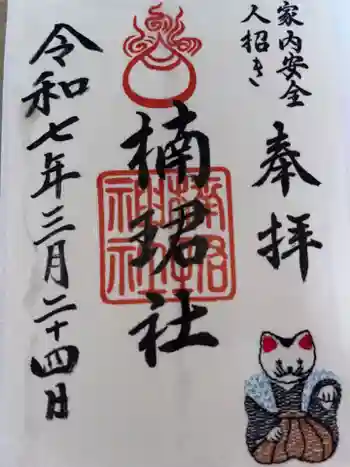 家内安全
人招き
奉拝
楠珺社
楠珺
神社
令和七年三月二十四日